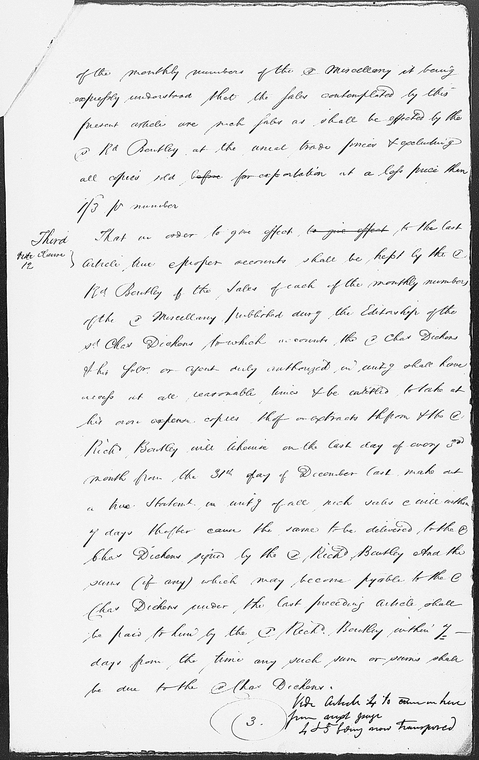 of the monthly numbers of the sd Miscellany it being
expressly understood that the sales contemplated by this
present article are such sales as shall be effected by the
sd Rd Bentley at the usual trade prices & excluding
all copies sold before for exportation at a less price than
1/3 pr number
Third
Vide Clause
12
That in order to give effect to give effect to the last
Article true & proper accounts shall be kept by the sd
Rd Bentley of the sales of each of the monthly numbers
of the sd Miscellany published durg the Editorship of the
sd Chas Dickens to which accounts the sd Chas Dickens
& his Solr or agent duly authorized in writg shall have
access at all reasonable times & be entitled to take at
his own expense copies thof or extracts thfrom & the sd
Richd Bentley will likewise on the last day of every 3rd
month from the 31st day of December last make out
a true Statemt in writg of all such sales & will within
7 days thafter cause the same to be delivered to the sd
Chas Dickens signed by the sd Richd Bentley And the
sums (if any) which may become payable to the sd
Chas Dickens under the last preceding Article shall
be paid to him by the sd Richd Bentley within 7
days from the time any such sum or sums shall
be due to the sd Chas Dickens.
3.
Vide Article 4 to come in here
from next page
4 & 5 being now transposed